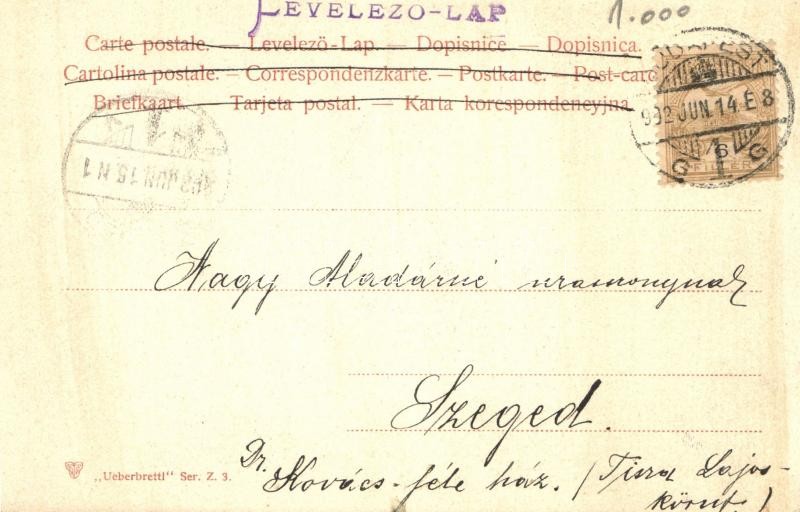 LEVELEZŐ-LAP
1.000
Carte postale. — Levelezö-Lap. — Dopisnice. — Dopisnica.
Cartolina postale. — Correspondenzkarte. — Postkarte. — Post-card
Briefkaart. — Tarjeta postal. — Karta korespondencyjna.
BUDAPEST
902 JUN. 14. É 8
6
G 1 G
FILLÉR
JUN. 15. N 1
Nagy Aladárné urasszonynak
Szeged.
Dr. Kovács-féle ház. (Tisza Lajos-
körút.)
„Ueberbrettl" Ser. Z. 3.